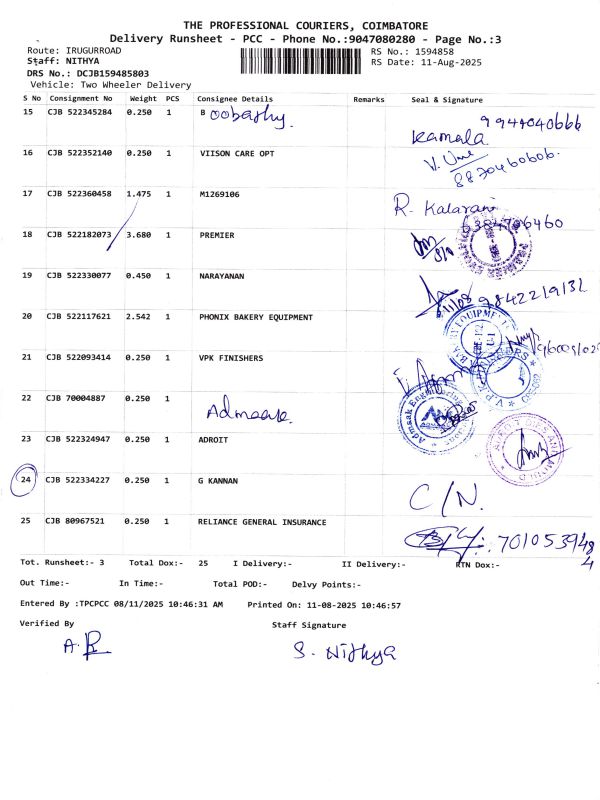 THE PROFESSIONAL COURIERS, COIMBATORE
Delivery Runsheet - PCC - Phone No.:9047080280 - Page No.:3
Route: IRUGURROAD
RS No.: 1594858
Staff: NITHYA
RS Date: 11-Aug-2025
DRS No.: DCJB159485803
Vehicle: Two Wheeler Delivery
S No Consignment No Weight PCS Consignee Details Remarks Seal & Signature
15 CJB 522345284 0.250 1 B
Kamala
16 CJB 522352140 0.250 1 VIISON CARE OPT
8870460606.
17 CJB 522360458 1.475 1 M1269106
R. Kalarani
6384706460
18 CJB 522182073 3.680 1 PREMIER
19 CJB 522330077 0.450 1 NARAYANAN
9842219132
20 CJB 522117621 2.542 1 PHONIX BAKERY EQUIPMENT
21 CJB 522093414 0.250 1 VPK FINISHERS
22 CJB 70004887 0.250 1
23 CJB 522324947 0.250 1 ADROIT
24 CJB 522334227 0.250 1 G KANNAN
C/N.
25 CJB 80967521 0.250 1 RELIANCE GENERAL INSURANCE
Tot. Runsheet:- 3 Total Dox:- 25 I Delivery:- II Delivery:- RTN Dox:-
Out Time:- In Time:- Total POD:- Delvy Points:-
Entered By :TPCPCC 08/11/2025 10:46:31 AM Printed On: 11-08-2025 10:46:57
Verified By Staff Signature
S. Nithya